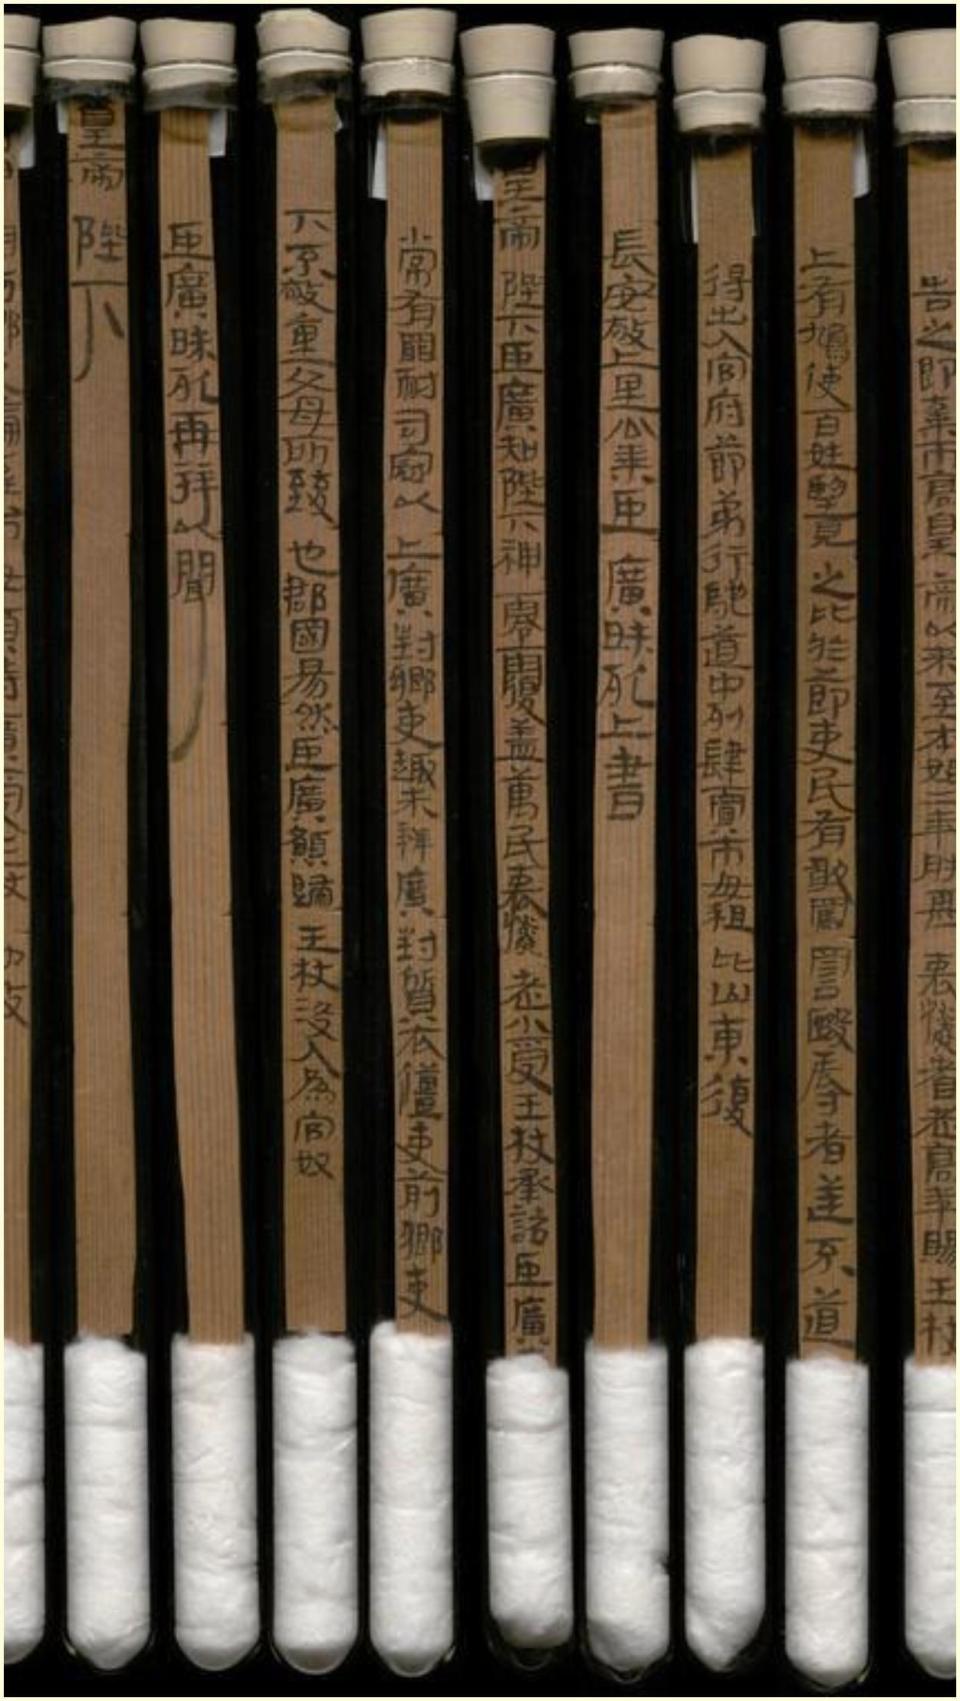 告之即棄市高皇帝以來至本始二年朕甚哀憐者老高年賜王杖
上有鳩使百姓望見之比於節吏民有敢罵詈毆辱者逆不道
得出入官府節弟行馳道中列肆賈市毋租比山東復
長安敬上里公乘臣廣昧死上書
皇帝陛下臣廣知陛下神零覆蓋萬民哀憐老小受王杖承詔臣廣
常有罪耐司寇以上廣對鄉吏趣未辨廣對質衣僵吏前鄉吏
下不敬重父母所致也郡國易然臣廣願歸王杖沒入為官奴
臣廣昧死再拜以聞
皇帝陛下